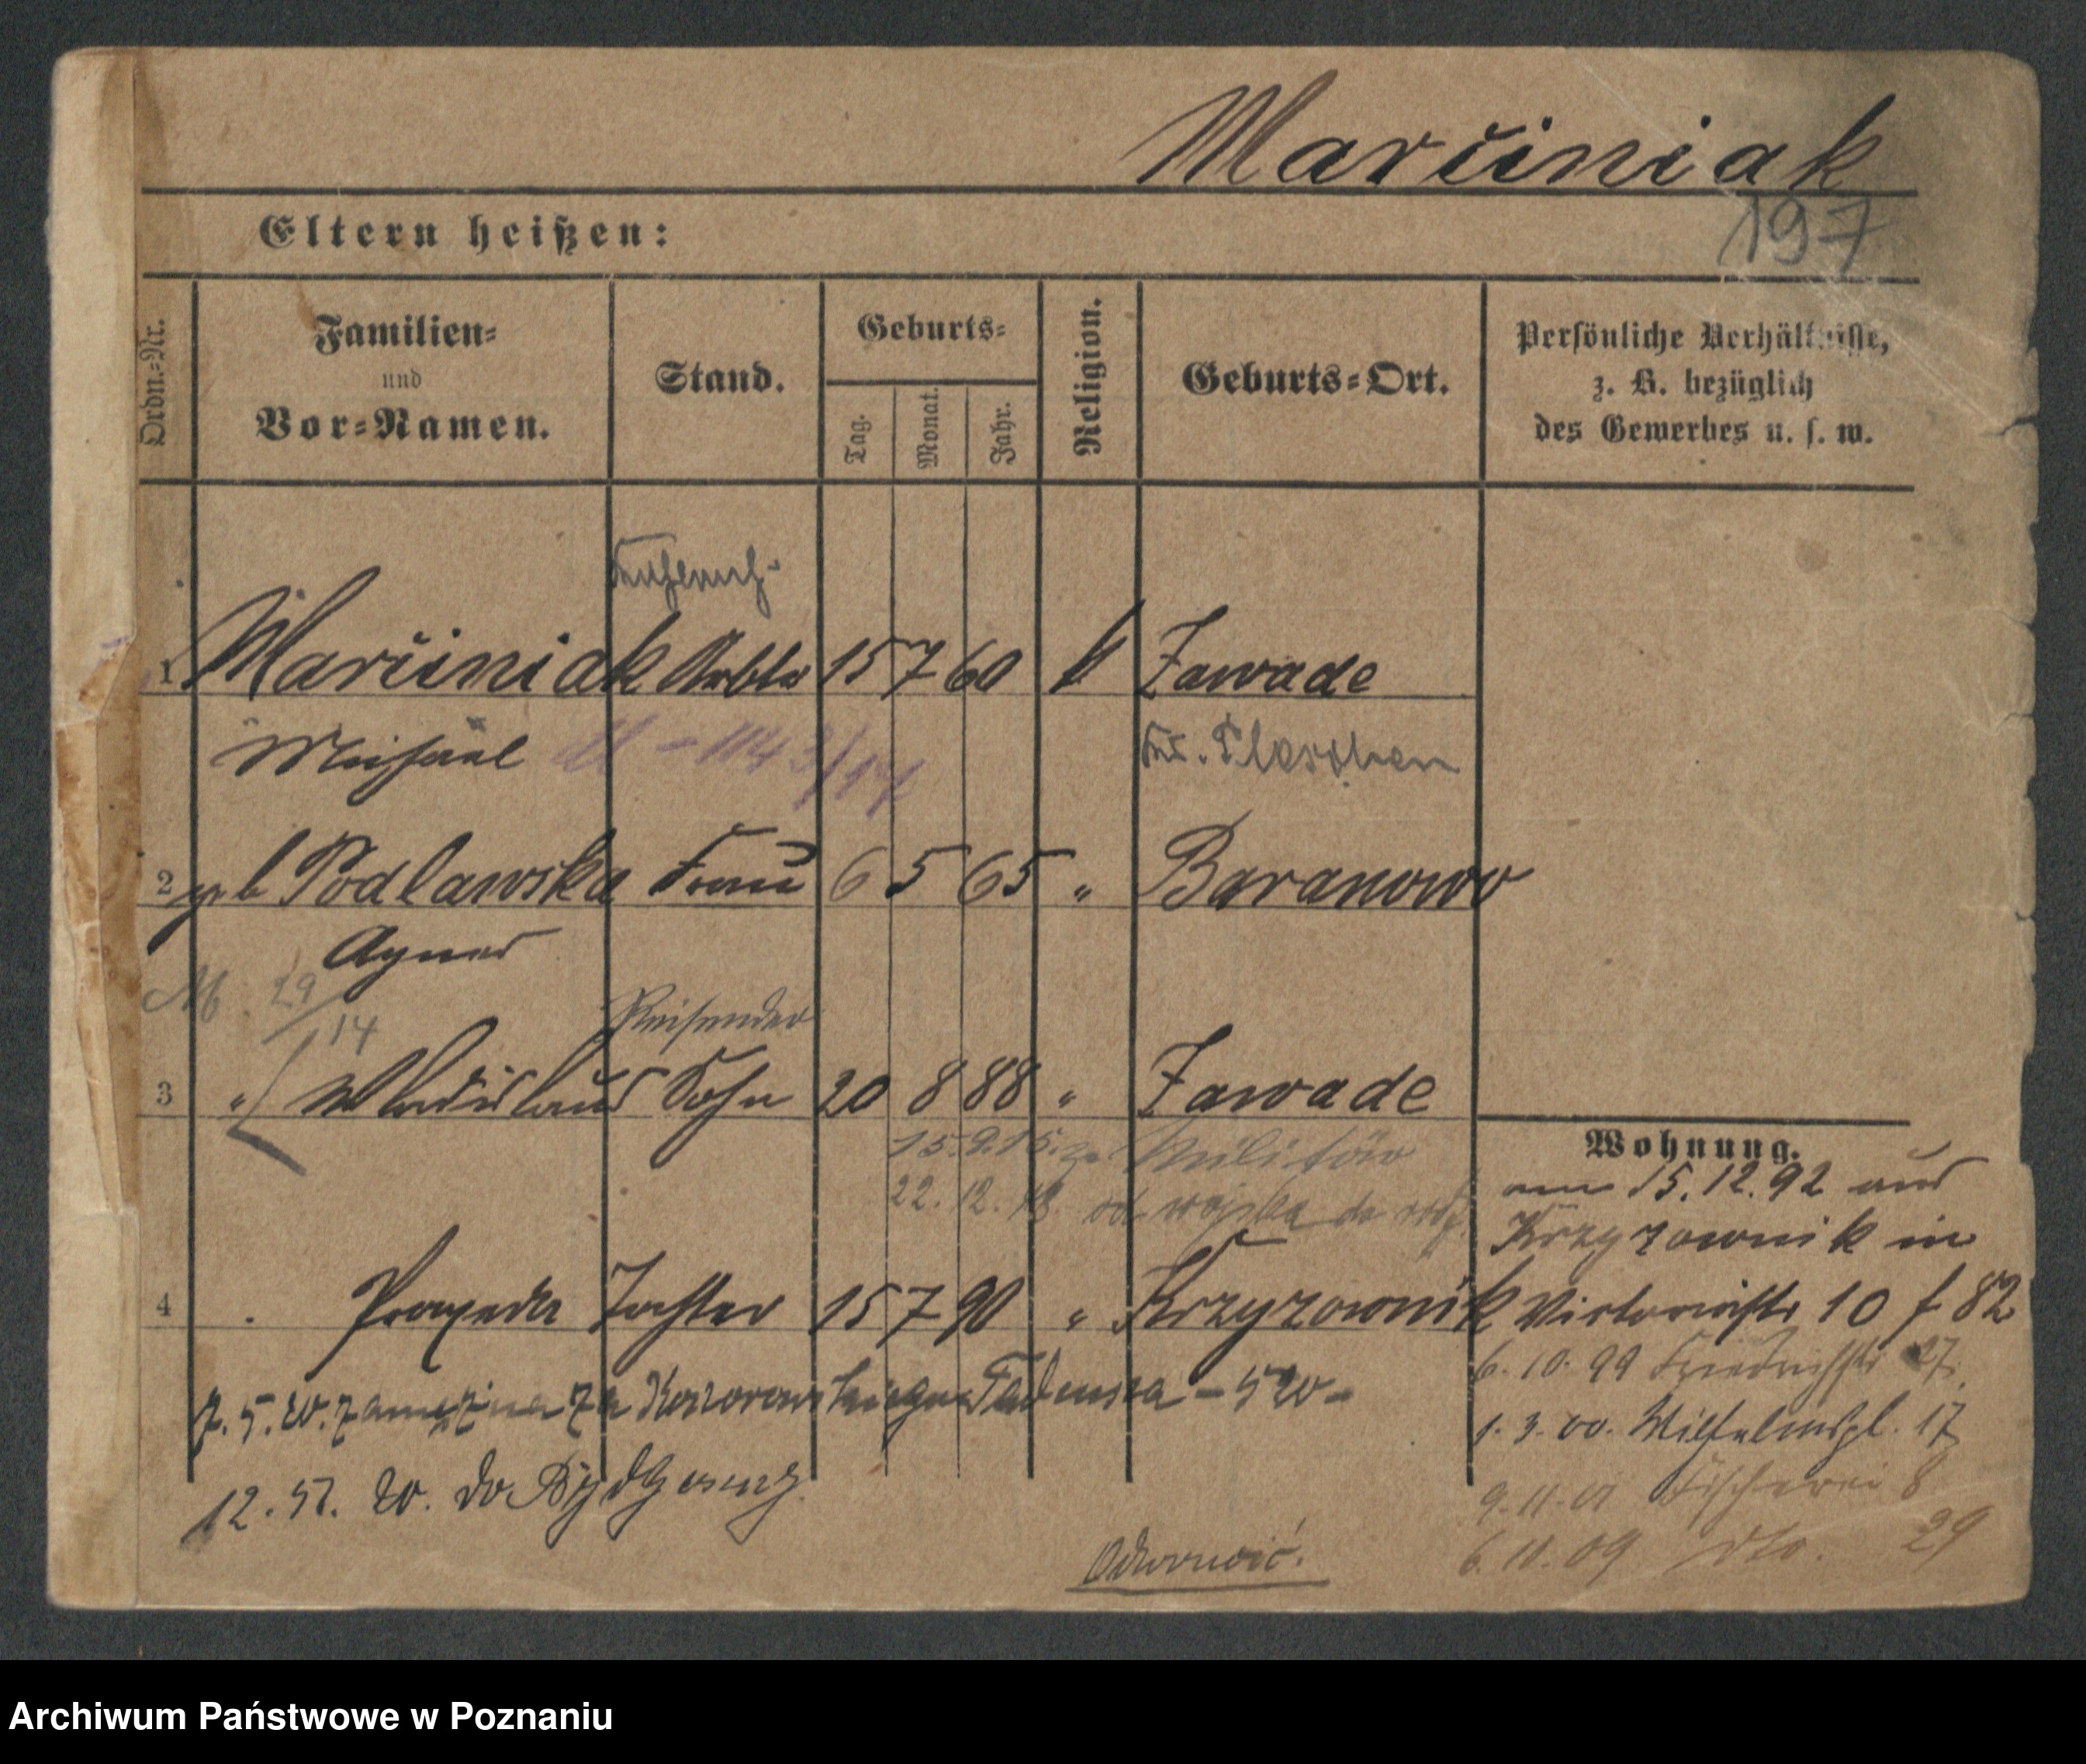 Marciniak
197
Eltern heißen:
Ordn.-Nr.
Familien-
und
Vor-Namen.
Stand.
Geburts-
Tag.
Monat.
Jahr.
Religion.
Geburts-Ort.
Persönliche Verhältnisse,
z. B. bezüglich
des Gewerbes u. s. w.
1 Marciniak 15 7 60 k Zawade
Michael Kr. Pleschen
2 geb Podlawska Frau 6 5 65 " Baranowo
Agnes
29/14
Reisender
3 " Wladislaus Sohn 20 8 88 " Zawade
15.9.15. z. Militär
22. 12. 18. od wojska
4 Praxeda Tochter 15 7 90 " Krzyzownik
7. 5. 20. zamężna za Tadeusza
12. 20. do Bydgoszczy
Odwrócić.
Wohnung.
am 15.12.92 aus
Krzyzownik in
Victoriastr 10 f 82
6. 10. 99 Friedrichstr 27.
1. 3. 00. Wilhelmspl. 17
9. 11. 01 Fischerei 8
6. 11. 09 dto. 29
Archiwum Państwowe w Poznaniu